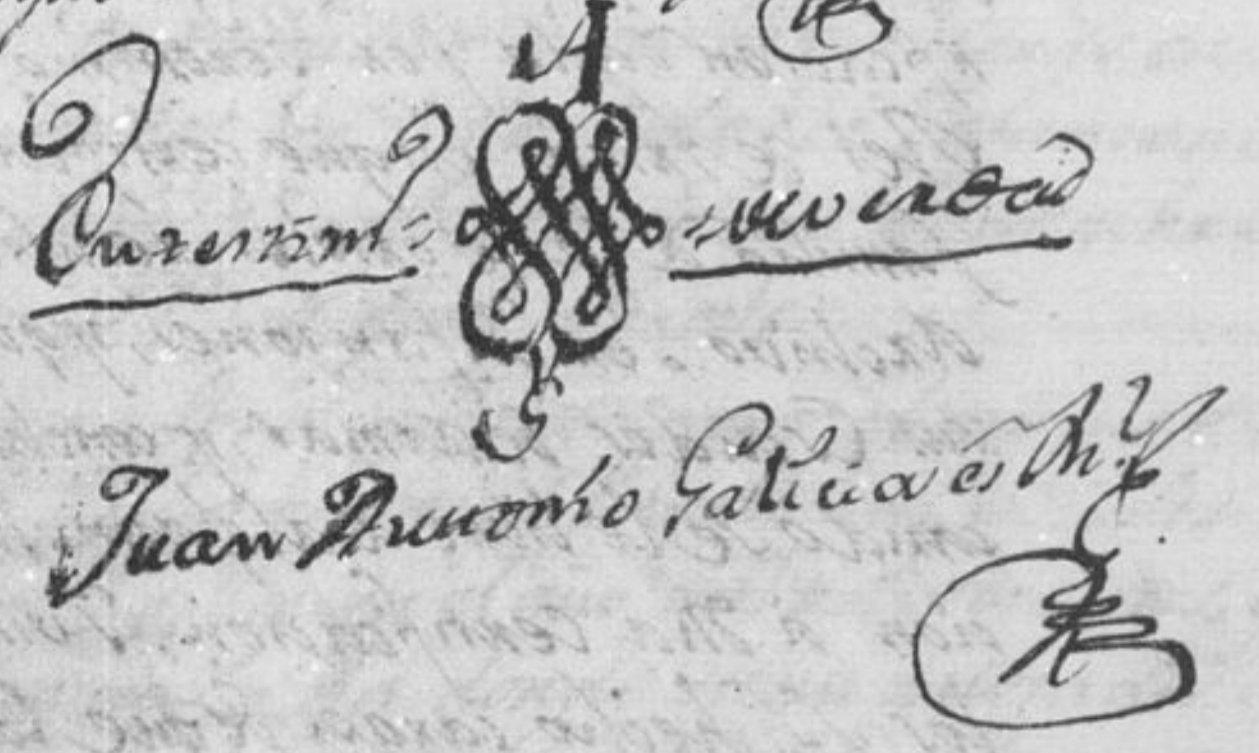 En testim.º de verdad
Juan Antonio Galicia